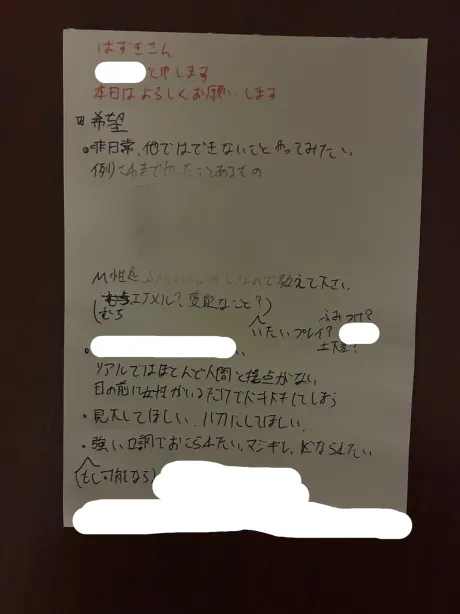 はずきさん
と申します
本日はよろしくお願いします
希望
非日常、他ではできないことやってみたい。
例)これまでやったことあるもの
M性感、
ので教えて下さい。
エナメル?、変態なこと?)
(むち
いたいプレイ?
ふみつけ?
土下座?
リアルではほとんど人間と接点がない。
目の前に女性がいるだけでドキドキしてしまう
・見下してほしい、バカにしてほしい。
・強い口調でおこられたい、マジギレ、どなられたい。
(もし可能なら)